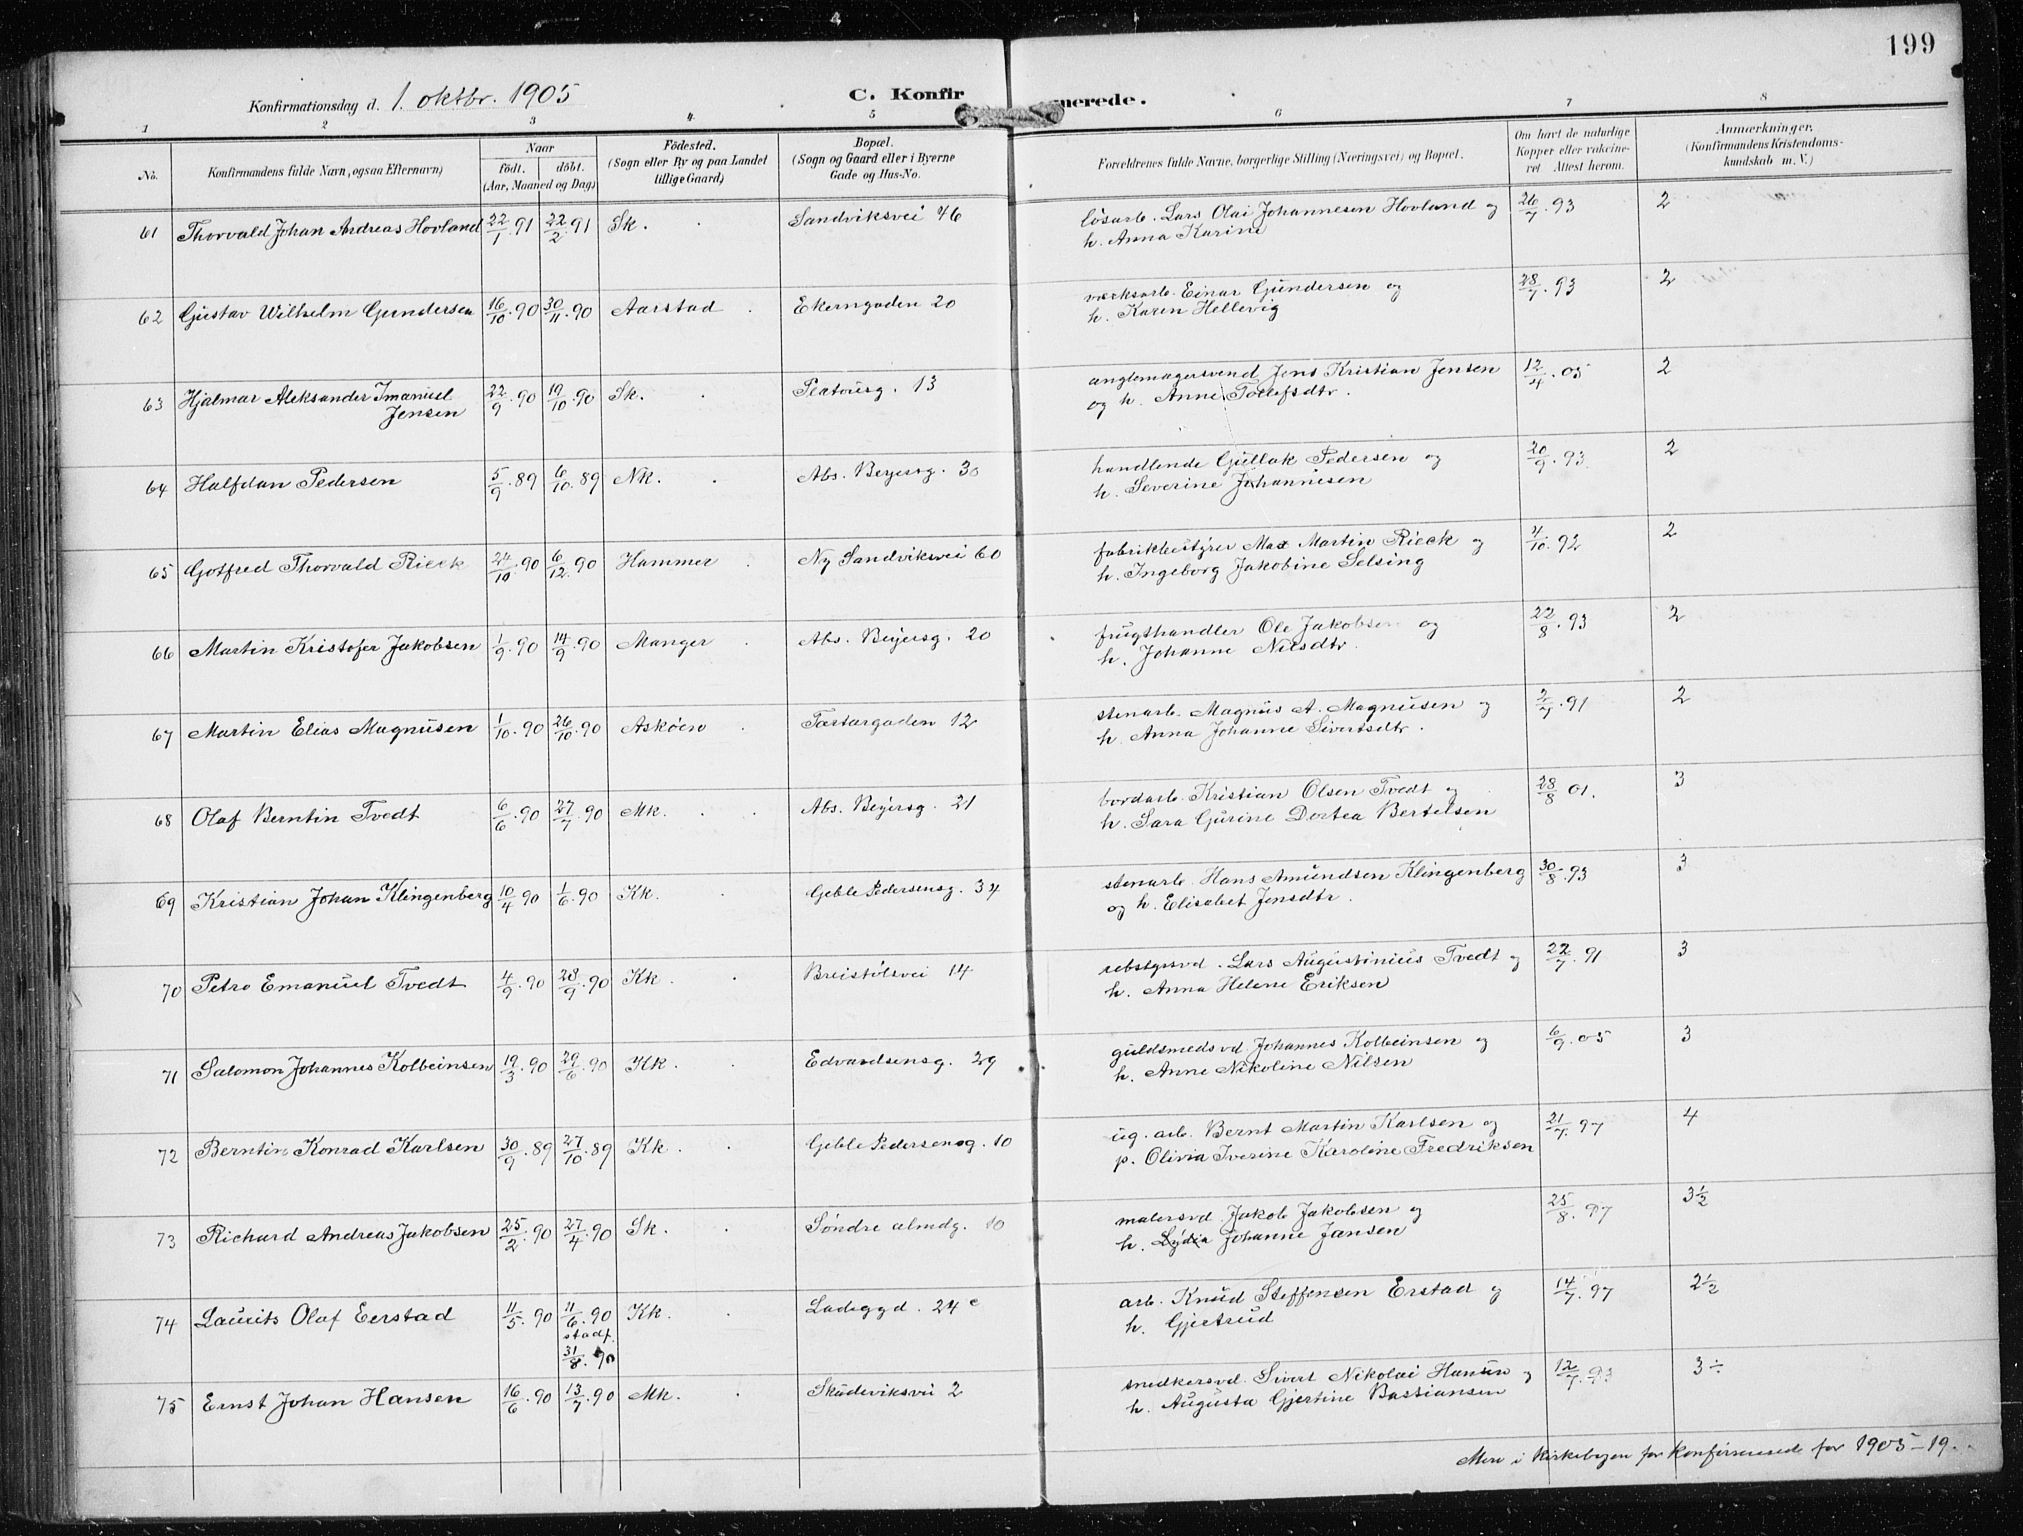 199
Konfirmationsdag d. 1. oktbr. 1905
C. Konfirmerede.
1 2 3 4 5 6 7 8
No. Konfirmandens fulde Navn, ogsaa Efternavn) Naar födt. döbt. (Aar, Maaned og Dag) Födested. (Sogn eller By og paa Landet tillige Gaard) Bopæl. (Sogn og Gaard eller i Byerne Gade og Hus-No. Forældrenes fulde Navne, borgerlige Stilling (Næringsvei) og Bopæl. Om havt de naturlige Kopper eller vakcineret Attest herom. Anmærkninger. (Konfirmandens Kristendomskundskab m. V.)
61 Thorvald Johan Andreas Hovland 22/1. 91 22/2. 91 Sk. Sandviksvei 46 løsarb. Lars Olai Johannesen Hovland og 26/7. 93 2
h. Anna Karine
62 Gustav Wilhelm Gundersen 16/10. 90 30/11. 90 Aarstad Ekerngaden 20 værksarb. Einar Gundersen og 28/7. 93 2
h. Karen Hellevig
63 Hjalmar Aleksander Imanuel 22/9. 90 19/10. 90 Sk. Platousg. 13 anglemagersvend Jens Kristian Jensen 12/4. 05 2
Jensen og h. Anne Tollefsdtr.
64 Halfdan Pedersen 5/9. 89 6/10. 89 Nk. Abs. Beyersg. 30 handlende Gullak Pedersen og 20/9. 93. 2
h. Severine Johannesen
65 Gotfred Thorvald Rieck 24/10. 90 6/12. 90 Hammer Ny Sandviksvei 60 fabrikbestyrer Max Martin Rieck og 4/10. 92 2
h. Ingeborg Jakobine Selsing
66 Martin Kristofer Jakobsen 1/9. 90 14/9. 90 Manger Abs. Beyersg. 20 frugthandler Ole Jakobsen og 22/8. 93 2
h. Johanne Nilsdtr.
67 Martin Elias Magnusen 1/10. 90 26/10. 90 Askøen Tartargaden 12 stenarb. Magnus A. Magnusen og 2/7. 91 2
h. Anna Johanne Sivertsdtr.
68 Olaf Berntin Tvedt 6/6. 90 27/7. 90 Mk. Abs. Beyersg. 21 bordarb. Kristian Olsen Tvedt og 28/8 01. 3
h. Sara Gurine Dortea Bertelsen
69 Kristian Johan Klingenberg 10/4. 90 1/6. 90 Kk. Geble Pedersensg. 34 stenarb. Hans Amundsen Klingenberg 30/8. 93 3
og h. Elisabet Jensdtr.
70 Petro Emanuel Tvedt 4/9. 90 28/9. 90 Kk. Breistølsvei 14 rebslgrsvd. Lars Augustinius Tvedt og 22/7. 91 3
h. Anna Helene Eriksen
71 Salomon Johannes Kolbeinsen 19/3. 90 29/6. 90 Kk. Edvardsensg. 29 guldsmedsvd. Johannes Kolbeinsen og 6/9. 05 3
h. Anne Nikoline Nilsen
72 Berntin Konrad Karlsen 30/9. 89 27/10. 89 Kk. Geble Pedersensg. 10 ug. arb. Bernt Martin Karlsen og 21/7. 97 4
p. Olivia Iverine Karoline Fredriksen
73 Richard Andreas Jakobsen 25/2. 90 27/4. 90 Sk. Søndre almdg. 10 malersvd. Jakob Jakobsen og 25/8. 97 3½
h. Lydia Johanne Jansen
74 Laurits Olaf Eerstad 11/5. 90 11/6. 90 Kk. Ladeggd. 24 c arb. Knud Steffensen Erstad og 14/7. 97 2½
stadf. h. Gjertrud
31/8. 90
75 Ernst Johan Hansen 16/6. 90 13/7. 90 Mk. Skudeviksvei 2 snedkersvd. Sivert Nikolai Hansen og 12/7. 93 3÷
h. Augusta Gjertine Bastiansen
Mere i kirkebogen for konfirmerede for 1905-19..